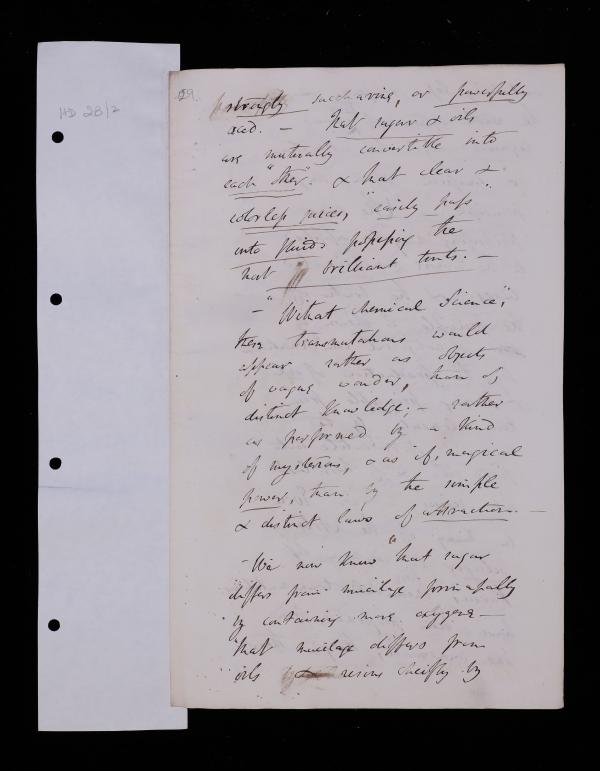 HD 28/2
29.
strongly saccharine, or powerfully
acid. – that sugar & oils
are mutually convertible into
each "other". & that clear &
colorless juices, "easily pass"
into fluids possessing the
most brilliant tints. –
– "Without chemical Science",
these transmutations would
appear rather as objects
of vague wonder, than of
distinct knowledge; – rather
as performed by a kind
of mysterious, & as if, magical
power, than by the simple
& distinct laws of attraction. –
– We now know "that sugar
differs from mucilage principally
by containing more oxygene –
"that mucilage differs from
oils & resins cheifly by